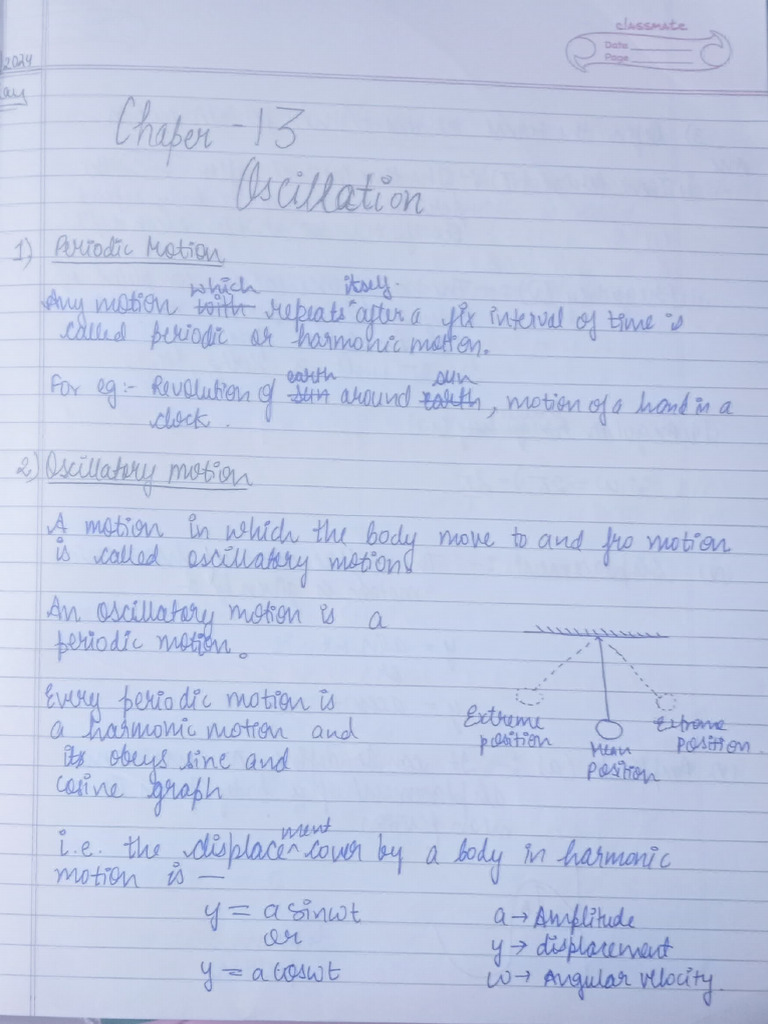 classmate
Date
Page
2024
ay
Chaper - 13
Oscillation
1) Periodic Motion
which itself.
Any motion with repeats ^ after a fix interval of time is
called periodic or harmonic motion.
earth sun
For eg:- Revolution of sun around earth, motion of a hand in a
clock.
2) Oscillatory motion
A motion in which the body move to and fro motion
is called oscillatory motion
An oscillatory motion is a
periodic motion.
Every periodic motion is
a harmonic motion and
its obeys sine and
cosine graph
Extreme position
Mean position
Extreme position
ment
i.e. the displace ^ cover by a body in harmonic
motion is —
y = a sinωt
or
y = a cosωt
a → Amplitude
y → displacement
ω → Angular velocity.